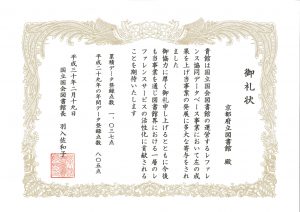 御礼状
京都府立図書館 殿
貴館は国立国会図書館の運営するレファレ
ンス協同データベース事業において左の成
果を上げ当事業の発展に多大な寄与をされ
ました
御協力に厚く御礼申し上げるとともに今後
も当事業を通じ図書館界における一層のレ
ファレンスサービスの活性化に貢献される
ことを期待いたします
累積データ登録点数 一、〇三七点
平成二十九年の年間データ登録点数 八〇五点
平成三十年二月十九日
国立国会図書館長 羽入佐和子